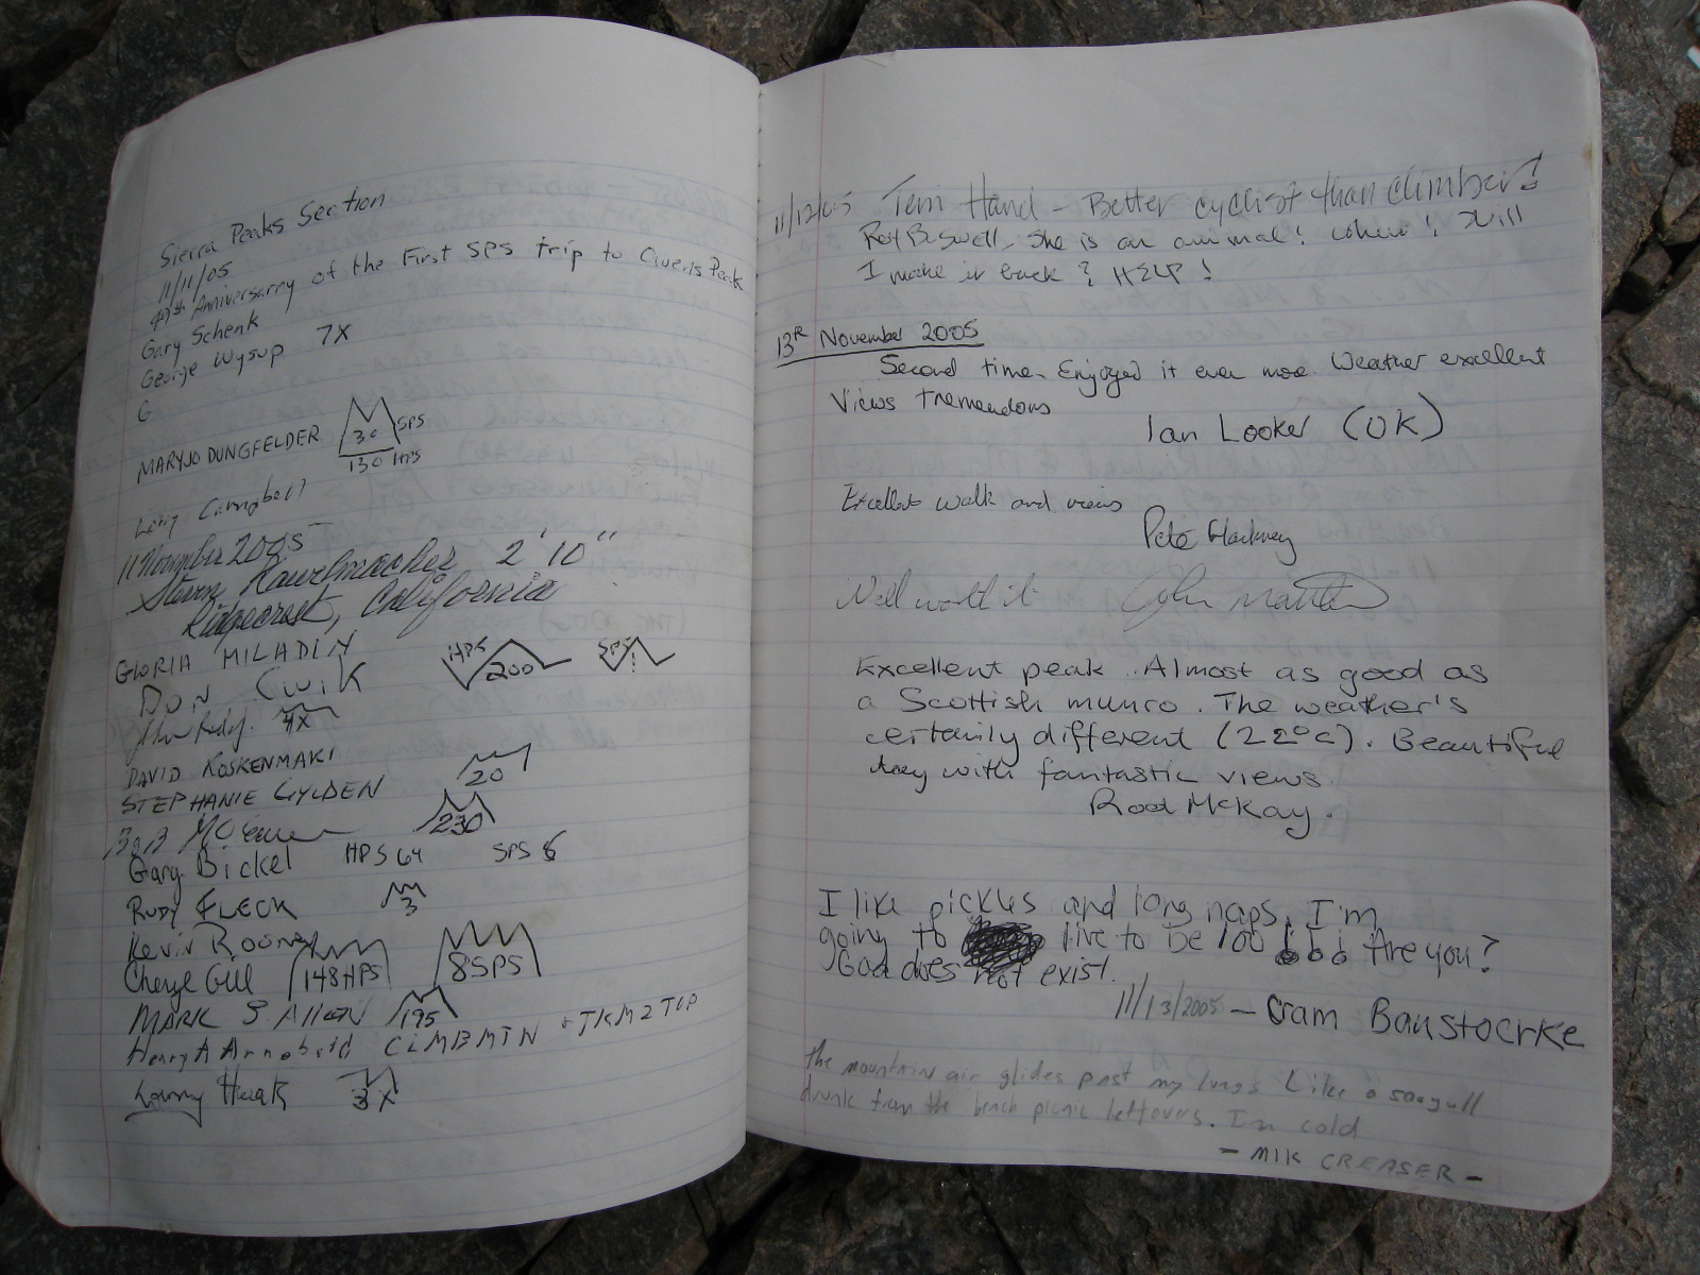 Sierra Peaks Section
11/11/05
Anniversarry of the First SPS trip to Owens Peak
Gary Schenk
George Wysup 7X
G
MARYJO DUNGFELDER 30 SPS
130 HPS
Campbell
11 November 2005
Steven 2'10"
Ridgecrest, California
GLORIA MILADIN HPS 200 SPS !
DON CWiK
4X
DAVID KOSKENMAKI
STEPHANIE GYLDEN 20
BOB 230
Gary Bickel HPS 64 SPS 6
RUDY FLECK 3
Kevin Rooney
Cheryl Gill 148 HPS 8 SPS
MARK S Allen 195
Henry A Arnebold CLMBMTN + JKM2TOP
Lanny Husk 3X
11/12/05 Terri Hand - Better cyclist than climber!
She is an animal! whew! Will
I make it back? HELP!
13R November 2005
Second time. Enjoyed it even more. Weather excellent
Views tremendous
Ian Looker (UK)
Excellent walk and views
Pete Hackney
Well worth it
Excellent peak. Almost as good as
a Scottish munro. The weather's
certainly different (22°C). Beautiful
day with fantastic views.
Rod McKay.
I like pickles and long naps. I'm
going to live to be 100 !!! Are you?
God does not exist.
11/13/2005 - Cram Banstoerke
The mountains air glides past my lungs Like a seagull
drunk from the beach picnic leftovers. I'm cold
- MIK CREASER -